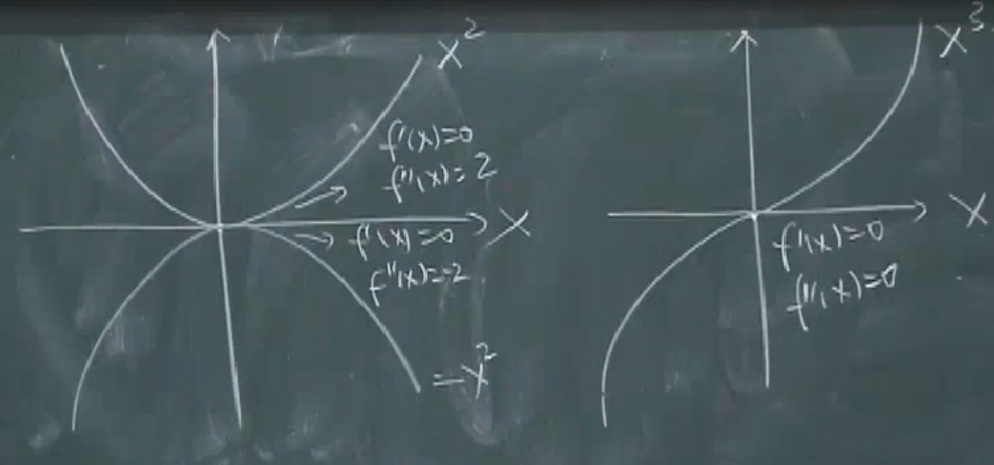 x²
f'(x)=0
f''(x)=2
x
f'(x)=0
f''(x)=-2
-x²
x³
x
f'(x)=0
f''(x)=0